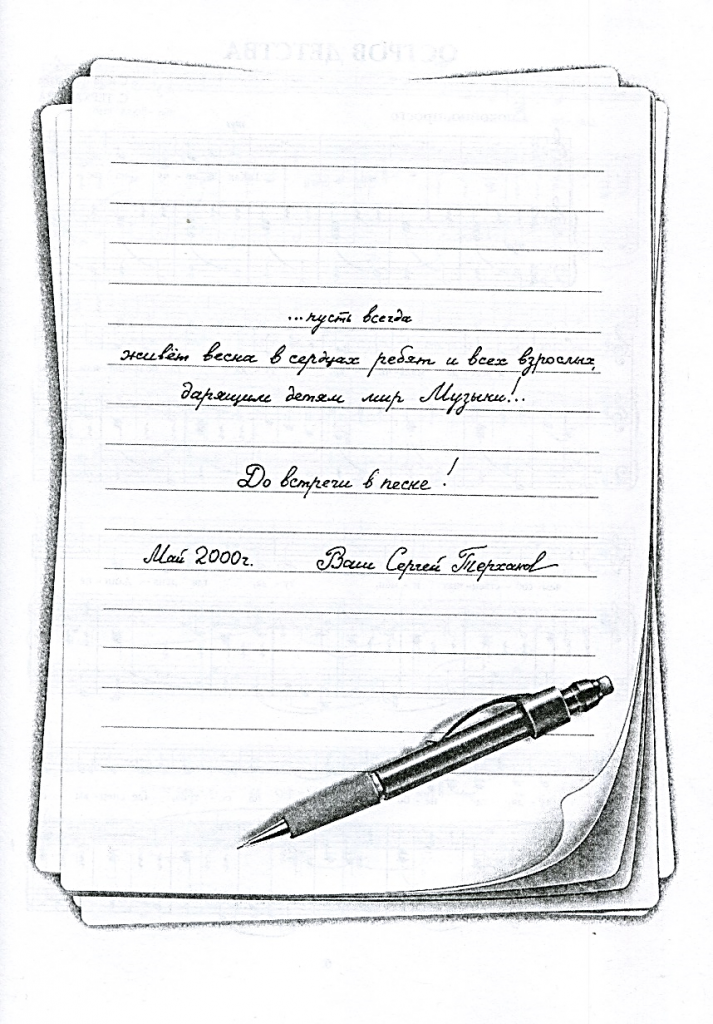 ...пусть всегда
живёт весна в сердцах ребят и всех взрослых,
дарящим детям мир Музыки!..
До встречи в песне!
Май 2000г. Ваш Сергей Терханов